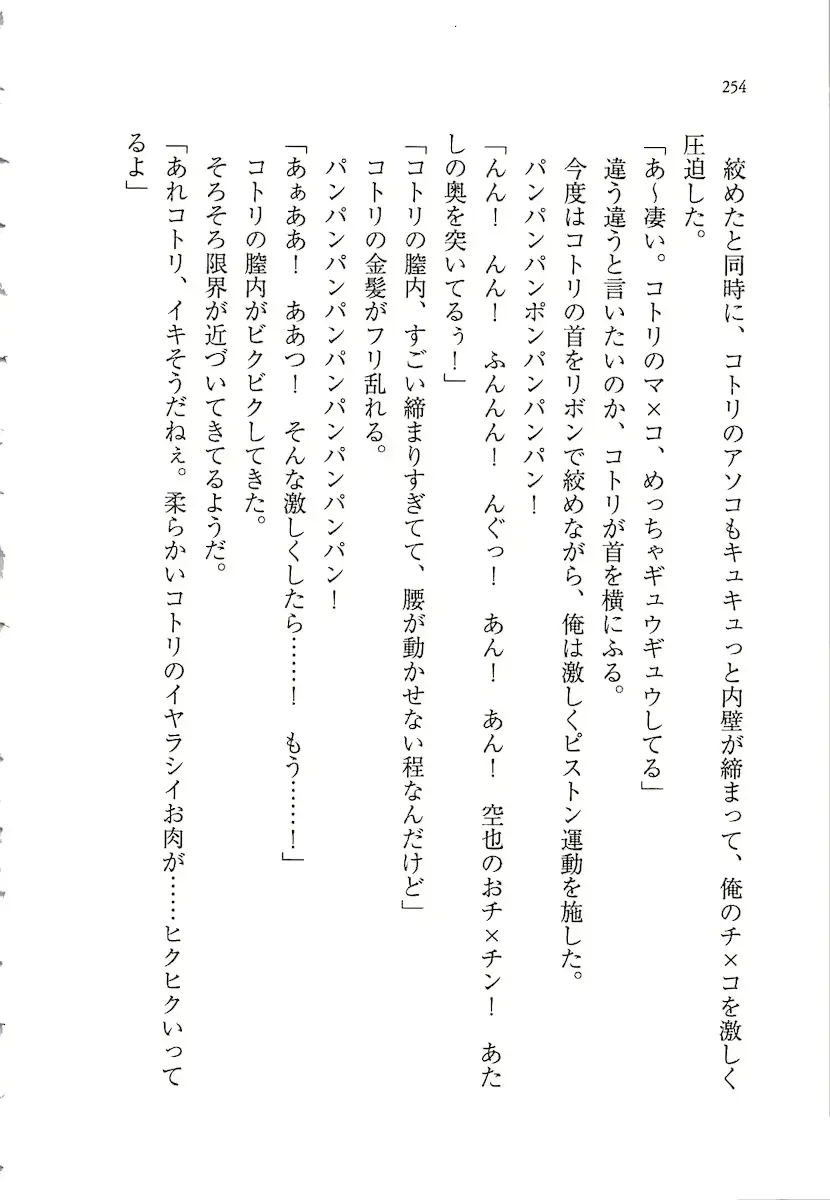 254
　絞めたと同時に、コトリのアソコもキュキュっと内壁が締まって、俺のチ×コを激しく
圧迫した。
「あ～凄い。コトリのマ×コ、めっちゃギュウギュウしてる」
　違う違うと言いたいのか、コトリが首を横にふる。
　今度はコトリの首をリボンで絞めながら、俺は激しくピストン運動を施した。
　パンパンパンポンパンパンパン！
「んん！　んん！　ふんんん！　んぐっ！　あん！　あん！　空也のおチ×チン！　あた
しの奥を突いてるぅ！」
「コトリの膣内、すごい締まりすぎてて、腰が動かせない程なんだけど」
　コトリの金髪がフリ乱れる。
　パンパンパンパンパンパンパンパンパン！
「あぁああ！　ああつ！　そんな激しくしたら……！　もう……！」
　コトリの膣内がビクビクしてきた。
　そろそろ限界が近づいてきてるようだ。
「あれコトリ、イキそうだねぇ。柔らかいコトリのイヤラシイお肉が……ヒクヒクいって
るよ」